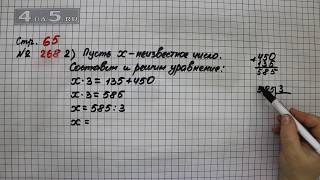 4 на 5.ru
Стр. 65
№ 268 2) Пусть x - неизвестное число.
Составим и решим уравнение:
x · 3 = 135 + 450
x · 3 = 585
x = 585 : 3
x =
+ 450
135
585
585 3